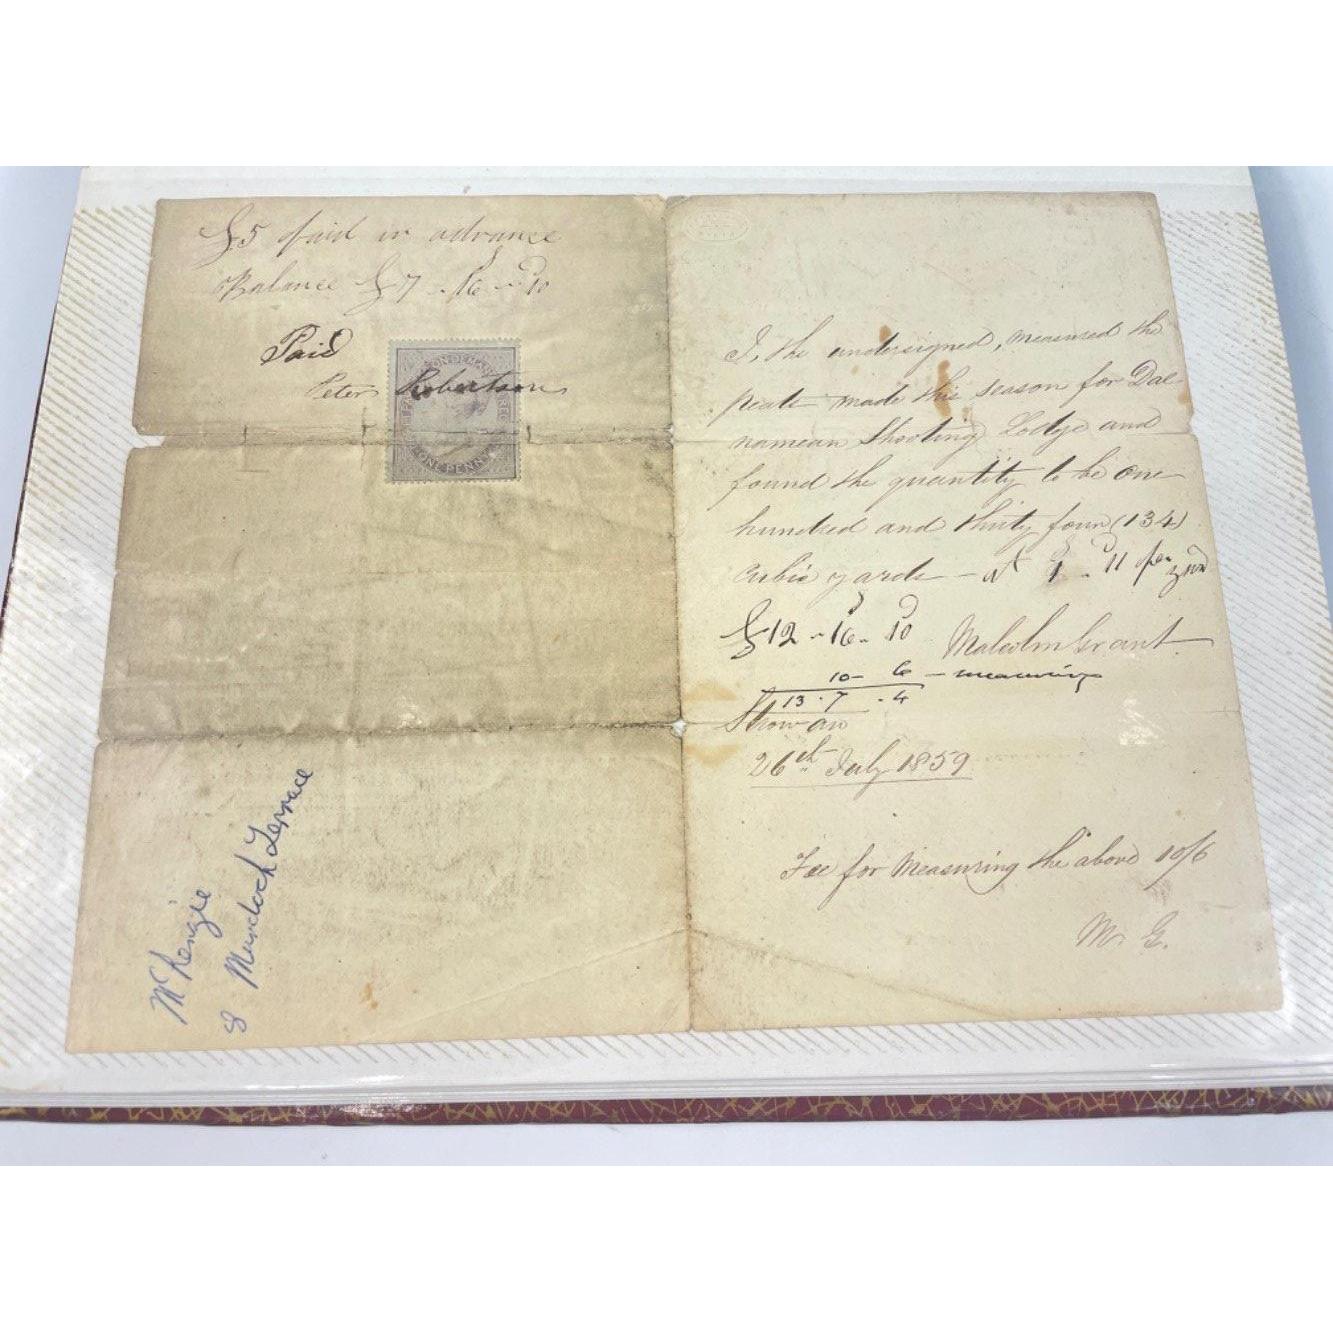 £5 paid in advance
Balance £7 - 16s - 10d
Paid
Peter Robertson
ONE PENNY
McKenzie
8 Murdoch Terrace
I, the undersigned, measured the
peats made this season for Dal
namein Shooting Lodge and
found the quantity to be one
hundred and thirty four (134)
cubic yards - at 1s - 11d per yard
£12 - 16s - 10d Malcolm Grant
10 - 6 - measuring
13 - 7 - 4
Strowan
26th July 1859
Fee for Measuring the above 10/6
M. G.